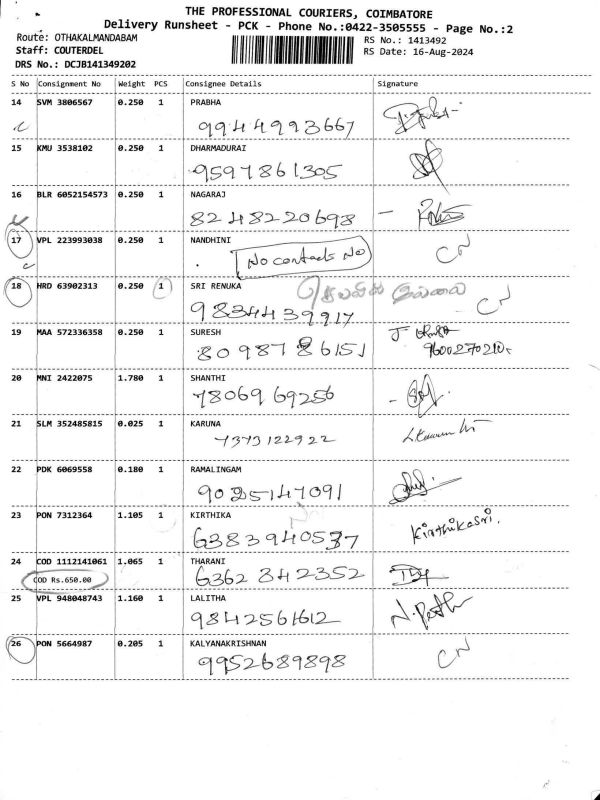 THE PROFESSIONAL COURIERS, COIMBATORE
Delivery Runsheet - PCK - Phone No.:0422-3505555 - Page No.:2
Route: OTHAKALMANDABAM
RS No.: 1413492
Staff: COUTERDEL
RS Date: 16-Aug-2024
DRS No.: DCJB141349202
S No Consignment No Weight PCS Consignee Details Signature
14 SVM 3806567 0.250 1 PRABHA
9944993667
15 KMU 3538102 0.250 1 DHARMADURAI
9597861305
16 BLR 6052154573 0.250 1 NAGARAJ
8248220698
17 VPL 223993038 0.250 1 NANDHINI CN
No contacts No
18 HRD 63902313 0.250 1 SRI RENUKA CN
9834439917
19 MAA 572336358 0.250 1 SURESH
8098786151 9600270210
20 MNI 2422075 1.780 1 SHANTHI
7806969256
21 SLM 352485815 0.025 1 KARUNA
7373122922
22 PDK 6069558 0.180 1 RAMALINGAM
9025147091
23 PON 7312364 1.105 1 KIRTHIKA Kirthikasri.
6383940537
24 COD 1112141061 1.065 1 THARANI
COD Rs.650.00 6362342352
25 VPL 948048743 1.160 1 LALITHA
9842561612
26 PON 5664987 0.205 1 KALYANAKRISHNAN CN
9952689898